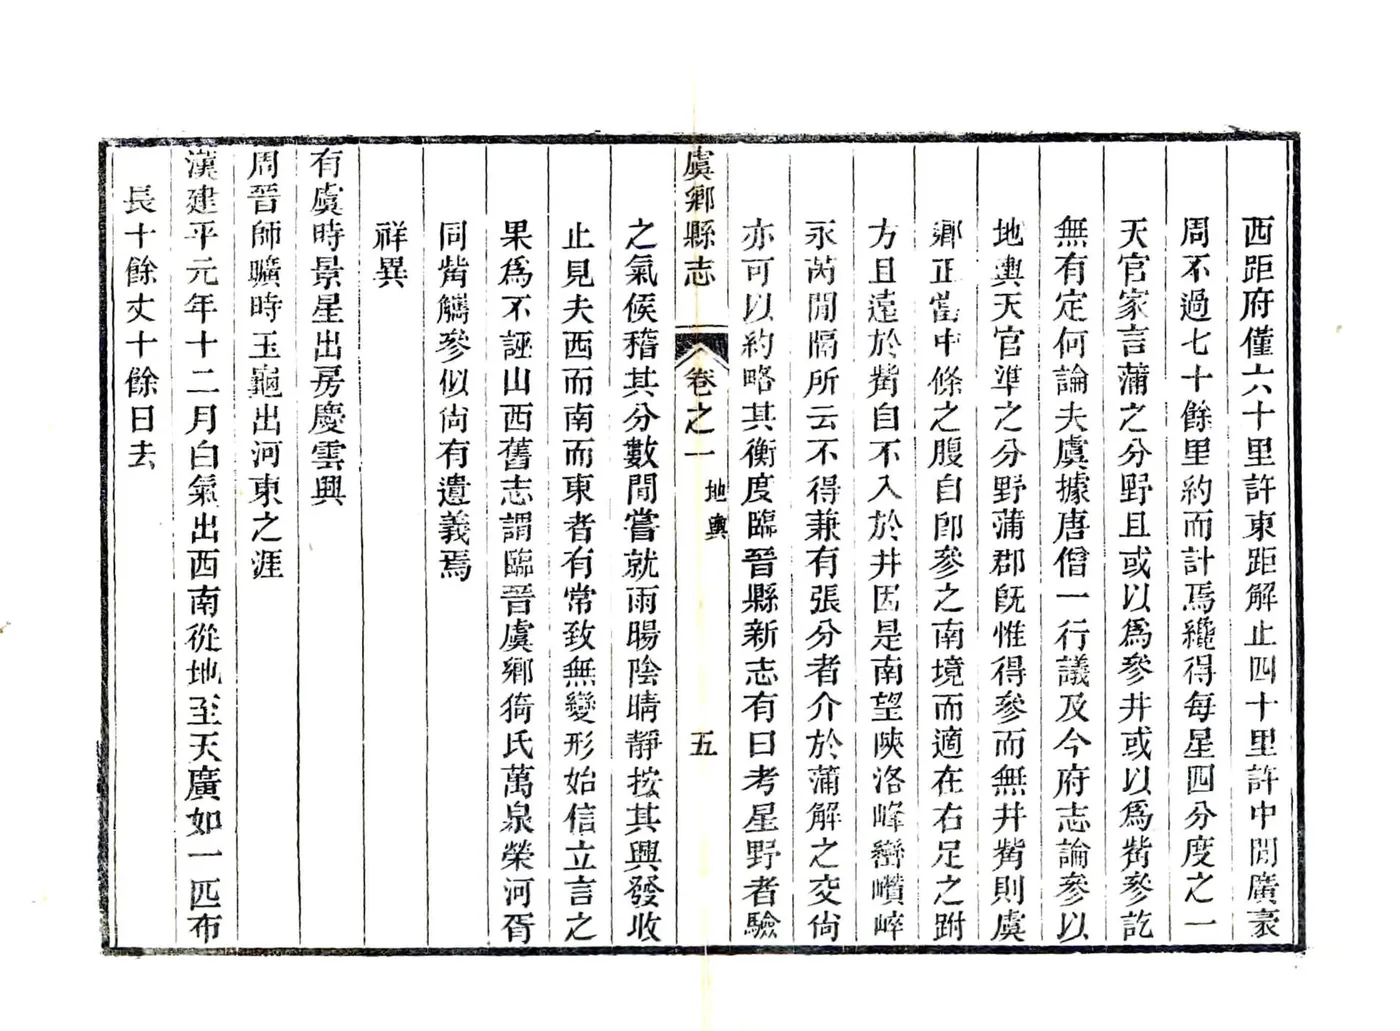 西距府僅六十里許東距解止四十里許中間廣袤
周不過七十餘里約而計焉纔得每星四分度之一
天官家言蒲之分野且或以爲參井或以爲觜參訖
無有定何論夫虞據唐僧一行議及今府志論參以
地輿天官準之分野蒲郡旣惟得參而無井觜則虞
鄉正當中條之腹自卽參之南境而適在右足之跗
方且遠於觜自不入於井因是南望陝洛峰巒巑崪
永芮間隔所云不得兼有張分者介於蒲解之交尙
亦可以約略其衡度臨晉縣新志有曰考星野者驗
虞鄉縣志
卷之一
地輿
五
之氣候稽其分數間嘗就雨暘陰晴靜按其興發收
止見夫西而南而東者有常致無變形始信立言之
果爲不誣山西舊志謂臨晉虞鄉猗氏萬泉榮河胥
同觜觿參似尙有遺義焉
祥異
有虞時景星出房慶雲興
周晉師曠時玉龜出河東之涯
漢建平元年十二月白氣出西南從地至天廣如一匹布
長十餘丈十餘日去